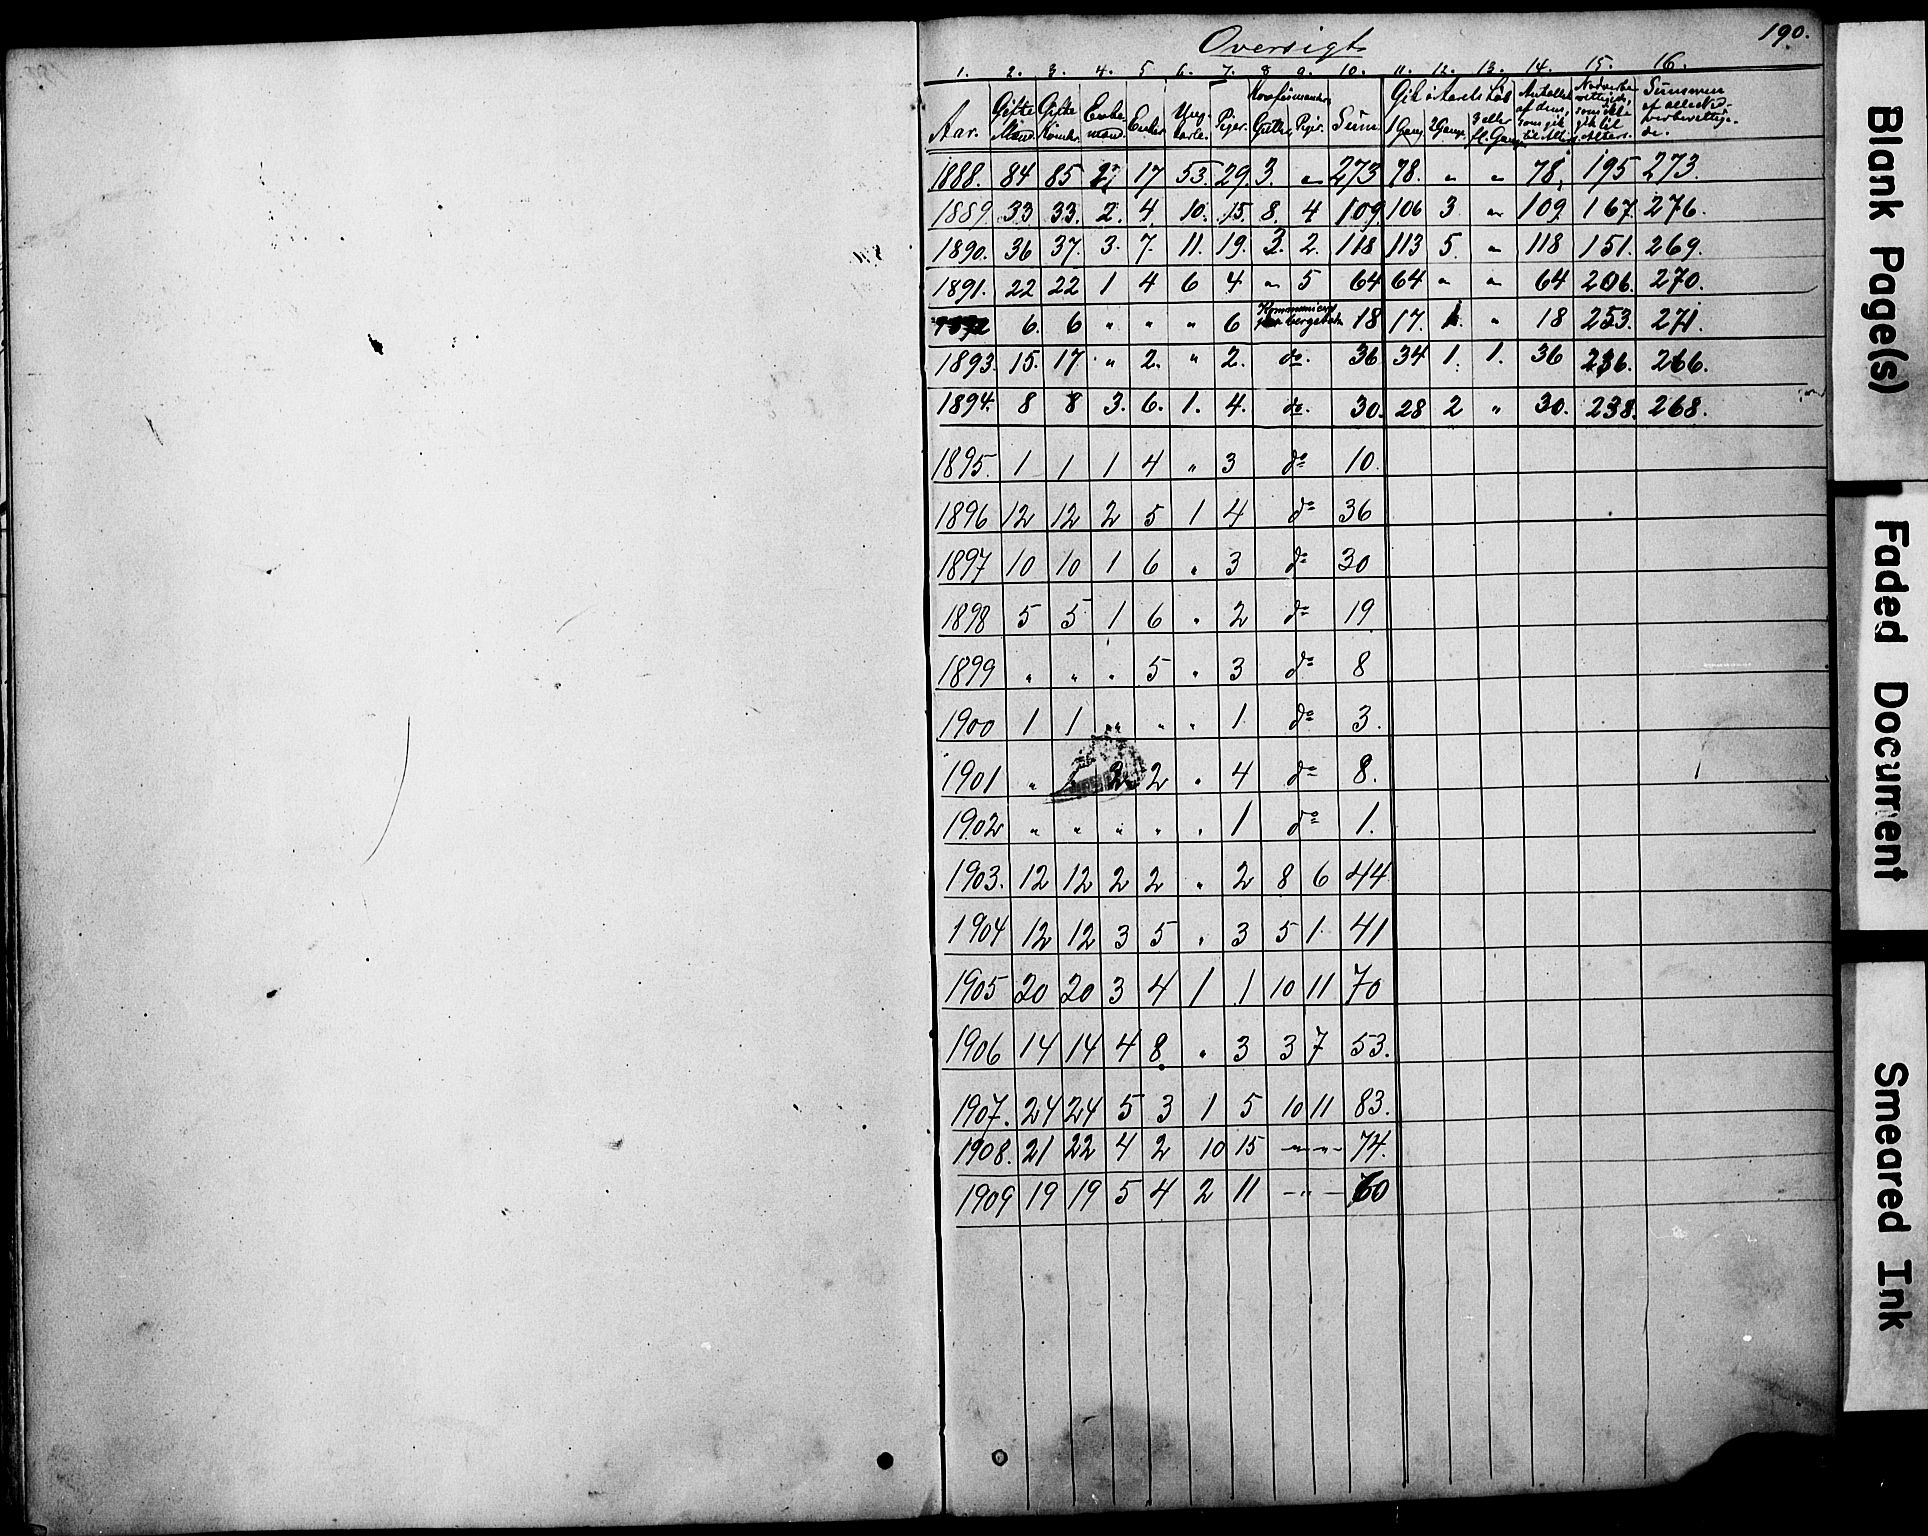 190.
Oversigt
1. 2. 3. 4. 5 6. 7. 8 9. 10. 11. 12. 13. 14. 15. 16.
Aar. Gifte Mænd Gifte Kvinder. Enke-mænd. Enker Ung-karle. Piger. Konfirmander Gutter Piger. Sum. Gik i Aarets Løb 1 Gang 2 Gange 3 eller fl. Gange Antallet af dem, som gik til Alters. Nadverbe-rettigede, som ikke gik til Alters. Summen af alle Nad-verberettige-de.
1888. 84 85 27 17 53. 29. 3. " 273 78. " " 78. 195 273.
1889. 33 33. 2. 4. 10. 15. 8. 4 109. 106 3 " 109. 167. 276.
1890. 36 37. 3. 7. 11. 19. 3. 2. 118 113 5. " 118 151. 269.
1891. 22 22 1 4 6 4 " 5 64 64 " " 64 206. 270.
1892 6. 6 " " " 6 18 17. 1. " 18 253. 271.
1893. 15. 17 " 2. " 2. do. 36 34 1. 1. 36 236. 266.
1894. 8 8 3. 6. 1. 4. do. 30. 28 2 " 30. 238. 268.
1895. 1 1 1 4 " 3 do 10.
1896 12 12 2 5 1 4 do 36
1897 10 10 1 6 " 3 do 30
1898 5 5 1 6 " 2 do 19
1899 " " " 5 " 3 do 8
1900 1 1 " " " 1 do 3.
1901 " 2 2 " 4 do 8.
1902 " " " " " 1 do 1.
1903. 12 12 2 2 " 2 8 6 44
1904 12 12 3 5 " 3 5 1. 41
1905 20 20 3 4 1 1 10 11 70
1906 14 14 4 8 " 3 3 7 53.
1907. 24 24 5 3 1 5 10 11 83.
1908. 21 22 4 2 10 15 -"-"- 74.
1909 19 19 5 4 2 11 -"- 60
Blank Page(s)
Faded Document
Smeared Ink